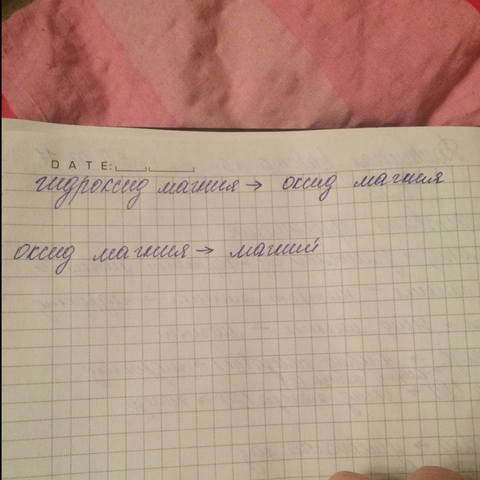 DATE:
гидроксид магния → оксид магния
оксид магния → магний